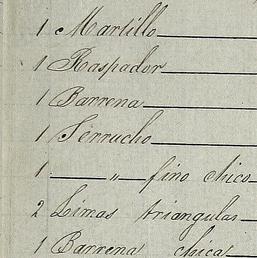 1 Martillo
1 Raspador
1 Barrena
1 Serrucho
1 " fino chico
2 Limas triangular
1 Barrena chica